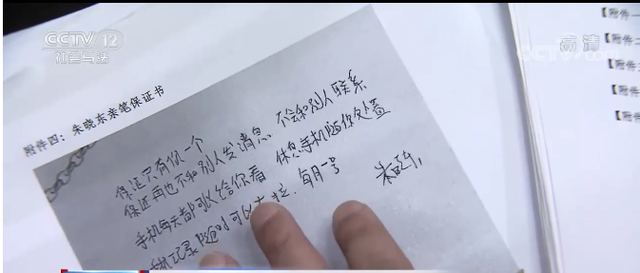 CCTV 12
社会与法
CCTV 高清
【附件一
【附件二
【附件
【附件
附件四：朱晓东亲笔保证书
保证只有你一个
保证再也不和别人发消息 不会和别人联系
手机每天都可以给你看 休息手机随你处置
记录随时可以 每月一号
朱晓东